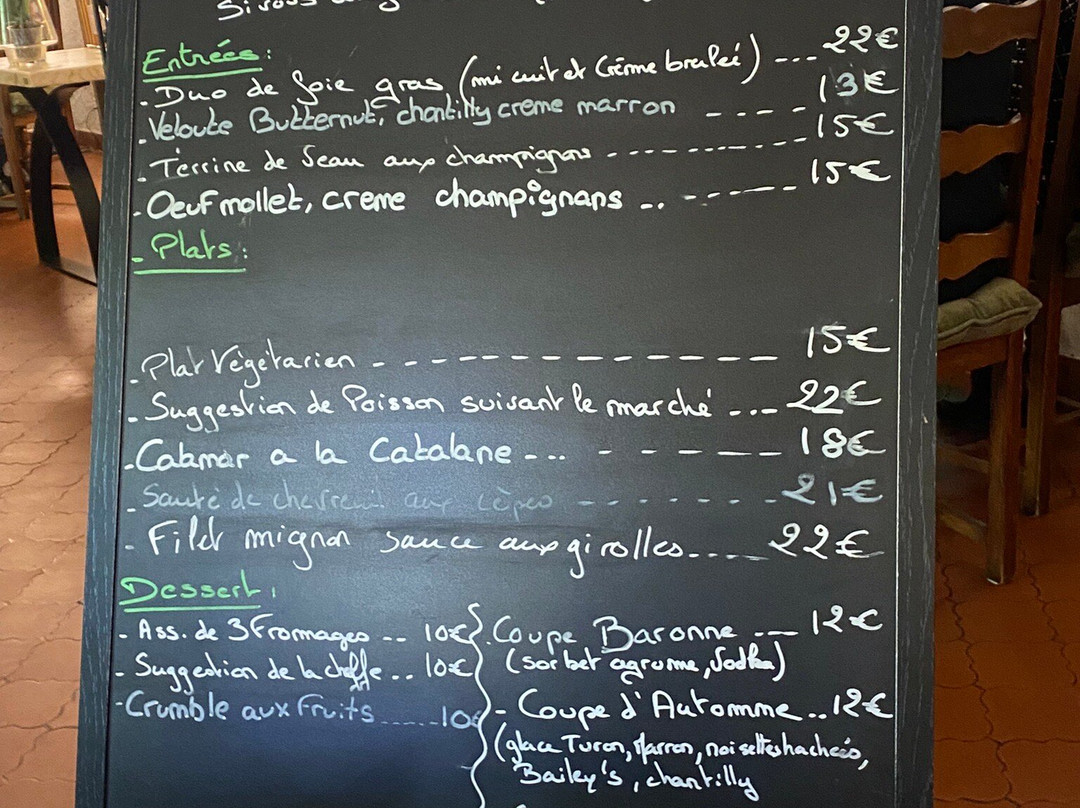 Entrées:
. Duo de foie gras, (mi cuit et Crème brulée) --- 22€
. Velouté Butternut, chantilly creme marron ---- 13€
. Terrine de Seau aux champignons --------- 15€
. Oeuf mollet, creme champignons .. ------ 15€
- Plats:
. Plat Végétarien - - - - - - - - - - - - - 15€
. Suggestion de Poisson suivant le marché ... 22€
. Calamar a la Catalane -... - - - - - 18€
. Sauté de chevreuil aux cèpes - - - - - - - 21€
- Filet mignon sauce aux girolles..... 22€
Dessert:
- Ass. de 3 Fromages -- 10€
- Suggestion de la cheffe .. 10€
- Crumble aux Fruits ...... 10€
. Coupe Baronne --- 12€
(sorbet agrume, Vodka)
- Coupe d'Automme .. 12€
(glace Turon, Marron, noisettes hachées,
Bailey's, chantilly